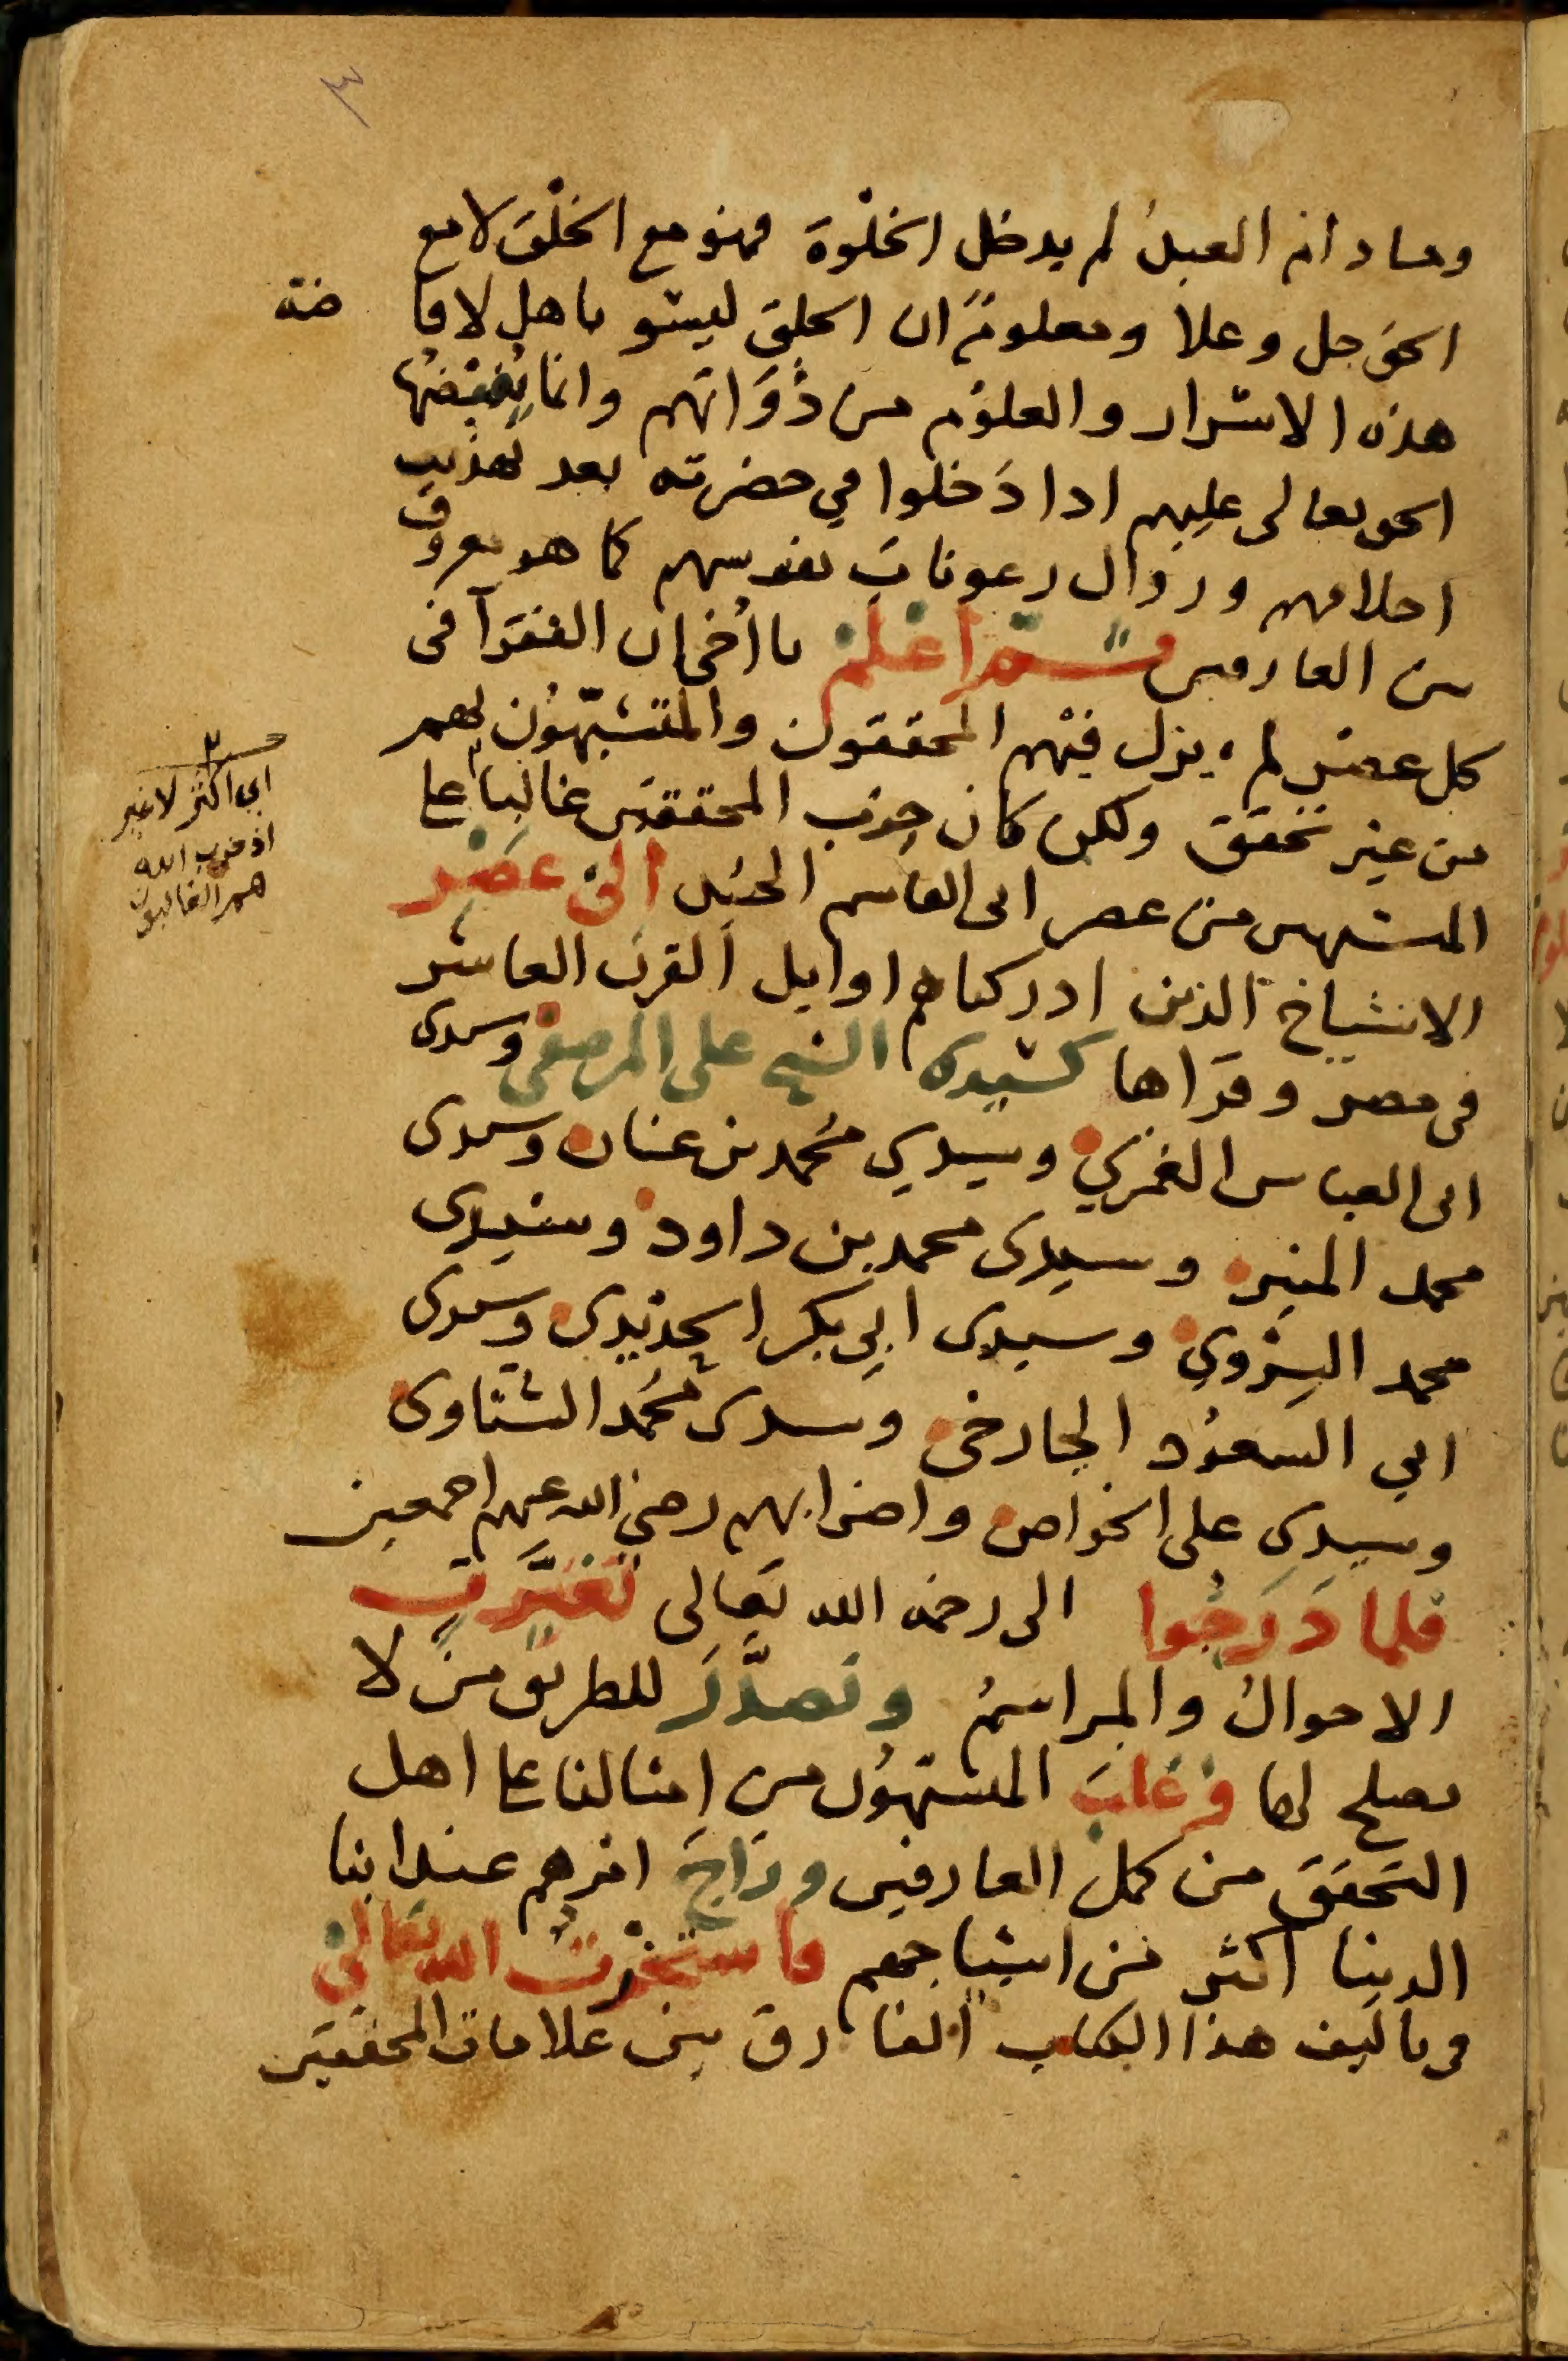 ٣
وما دام العبدُ لم يدخل الخلْوة فهو مع الخلْق لا مع
الحق جل وعلا ومعلومٌ ان الخلق ليسو باهل لافا ضة
هذه الاسرار والعلوُم من ذَوَاتهم وانما يُفيضُها
الحق تعالى عليهم اذا دَخلوا في حضرته بعد تهذيب
اخلاقهم وزوال رعونات نفوسهم كما هو معروف
بين العارفين ثم اعلم يا اخي ان الفقرآ فى
كل عصر لم يزل فيهم المحققون والمتشبّهون بهم
من غير تحقق ولكن كان حزب المحققين غالباً على
المشبهين من عصر ابى القاسم الجنيد الى عصر
الاشياخ الذين ادركناهم اوايل القرن العاشر
فى مصر وقراها كسيدى الشيخ على المرصفى وسيدى
ابى العباس الغمري وسيدي محمد بن عنان وسيدى
محمد المنير وسيدى محمد بن داود وسيدى
محمد السروي وسيدى ابي بكر الحديدى وسيدى
ابي السعوُد الجارحى وسيدى محمد الشناوى
وسيدي على الخواص واضرابهم رضي الله عنهم اجمعين
فلما دَرَجُوا الى رحمة الله تعالى تغيَّرت
الاحوالُ والمراسمُ وتصدَّرَ للطريق من لا
يصلح لها وغلبَ المشبهوُن من امثالنا على اهل
التحقق من كمل العارفين ورَاجَ امرهم عند ابنا
الدنيا اكثر من اشياخهم فاستخرْتُ الله تعالى
فى تاليف هذا الكتاب الفارق بين علامات المحققين
اى اكثر لا غير
اذ حزب الله
هم الغالبون